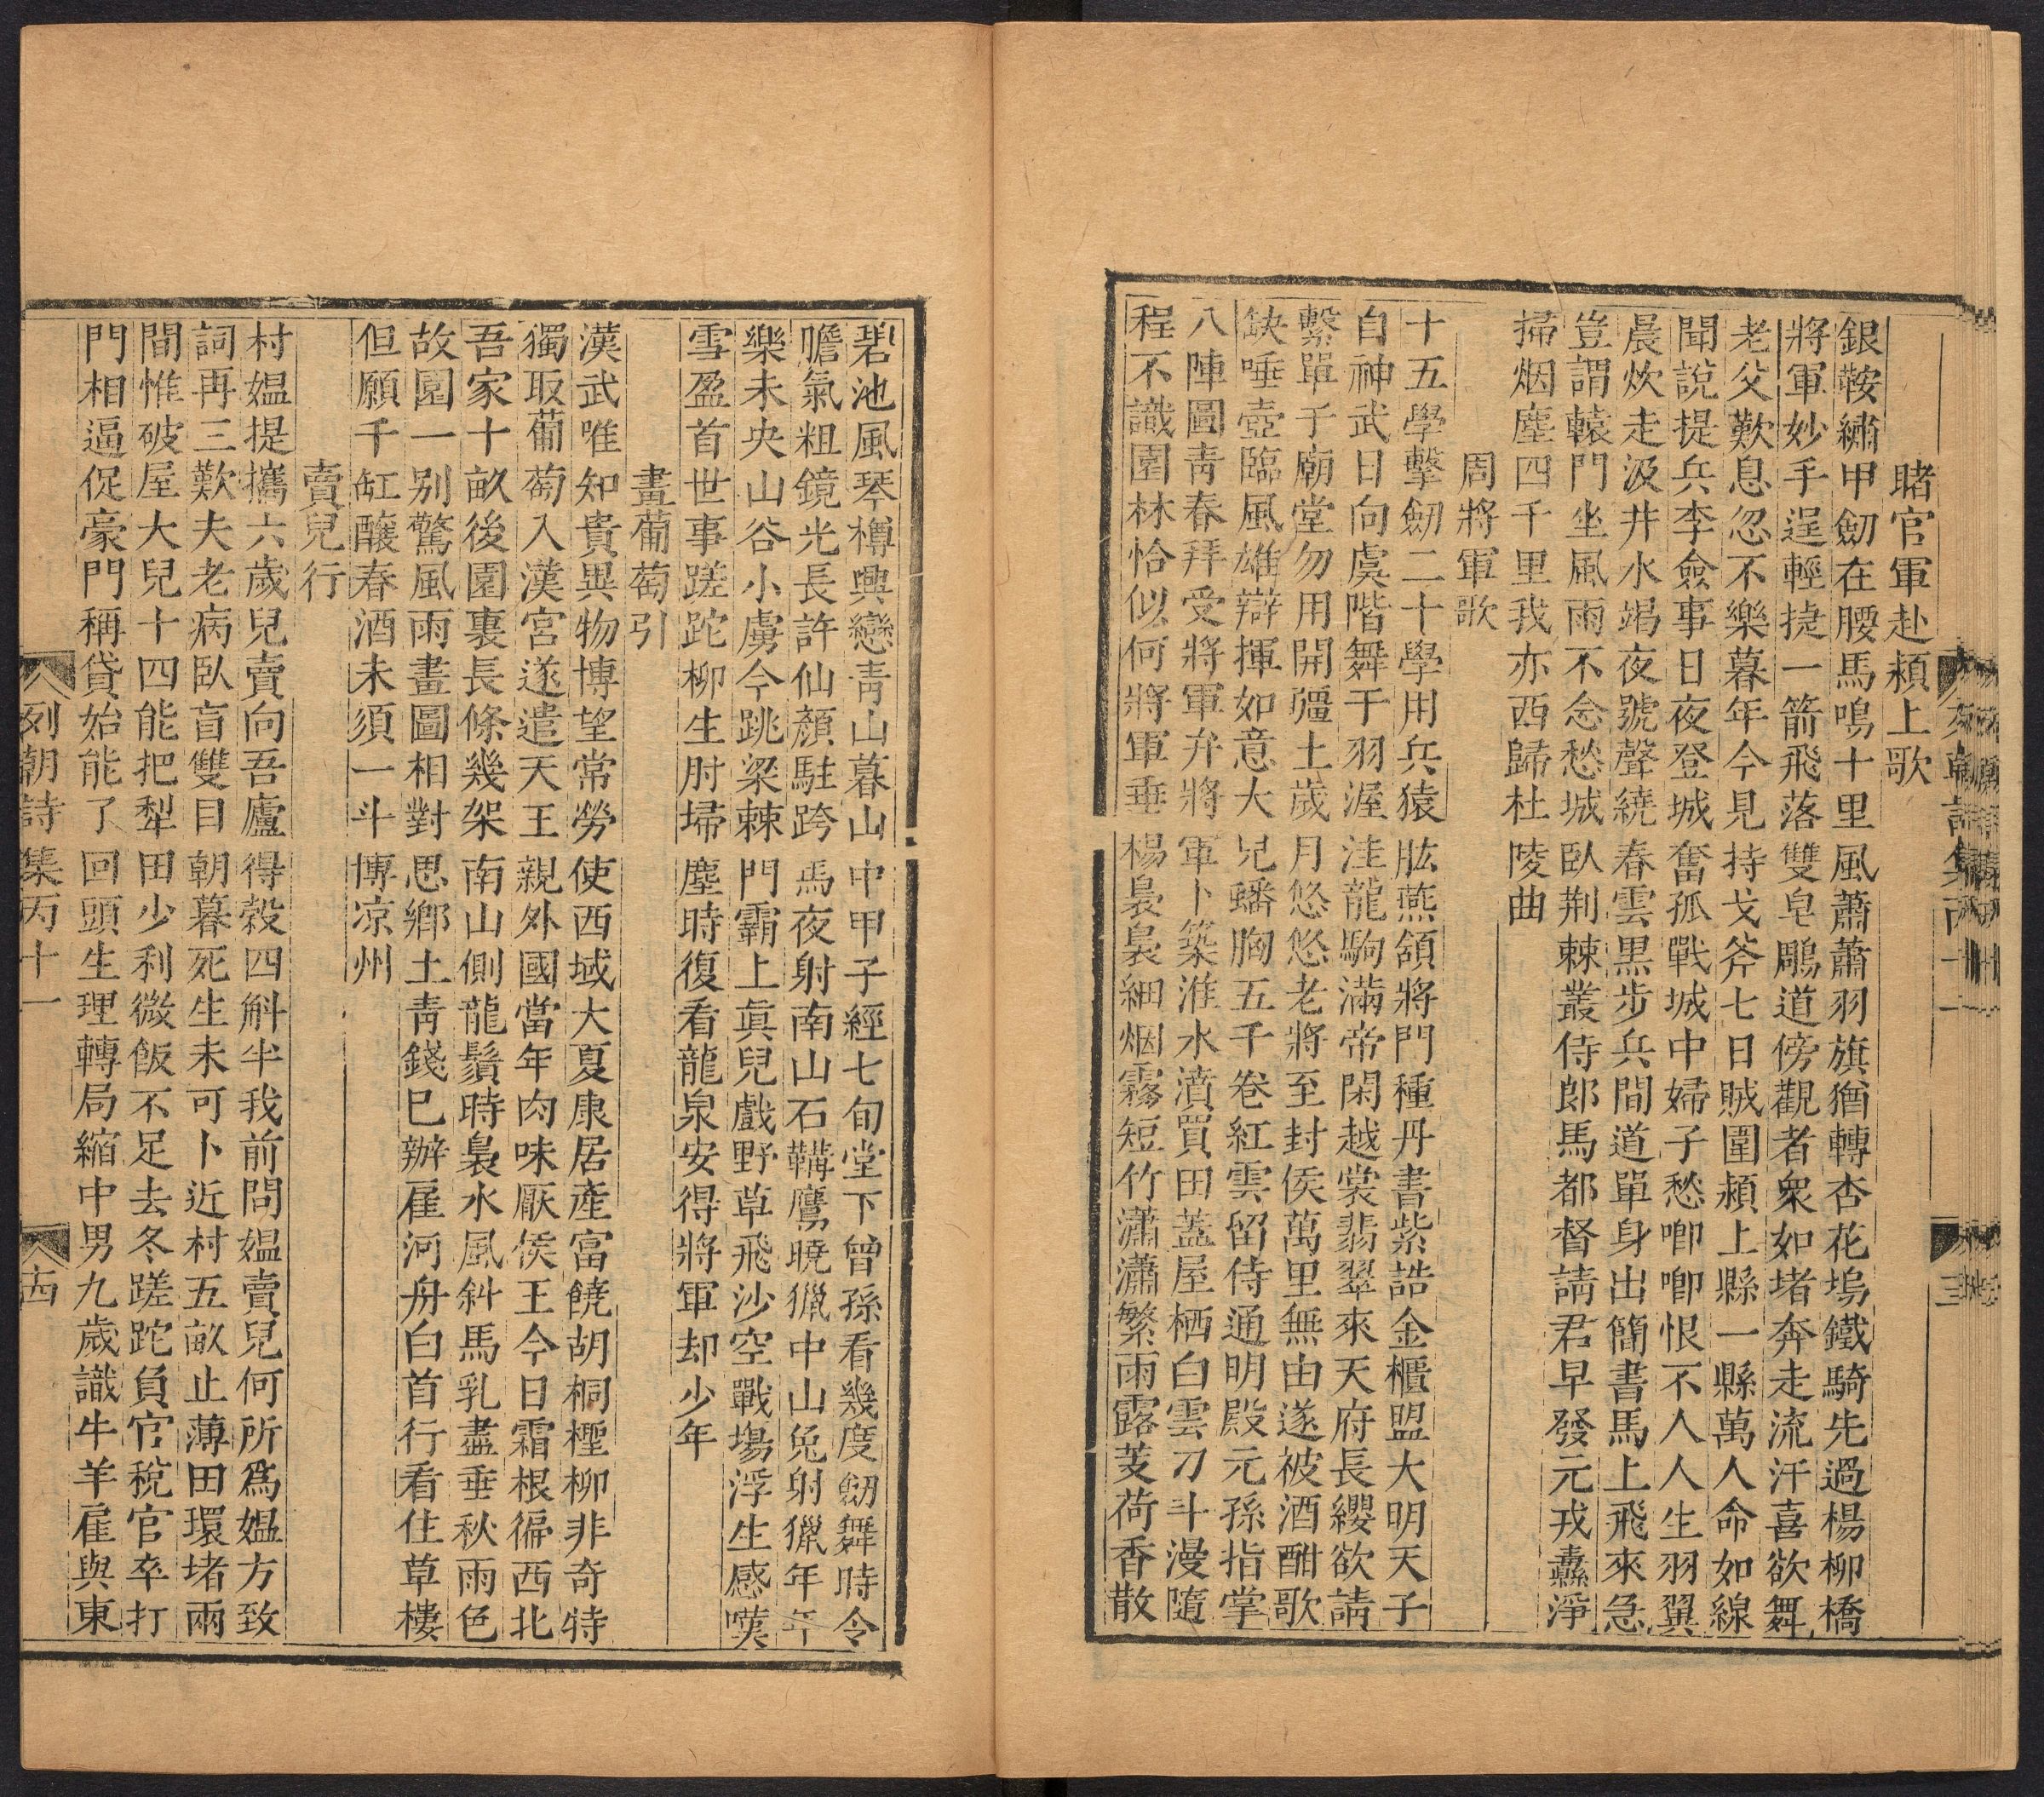 睹官軍赴潁上歌
銀鞍繡甲劒在腰馬鳴十里風蕭蕭羽旗猶轉杏花塢鐵騎先過楊柳橋
將軍妙手逞輕捷一箭飛落雙皂鵰道傍觀者衆如堵奔走流汗喜欲舞
老父歎息忽不樂暮年今見持戈斧七日賊圍潁上縣一縣萬人命如線
聞說提兵李僉事日夜登城奮孤戰城中婦子愁喞喞恨不人人生羽翼
晨炊走汲井水竭夜號聲繞春雲黒步兵間道單身出簡書馬上飛來急
豈謂轅門坐風雨不念愁城臥荆棘叢侍郎馬都督請君早發元戎纛淨
掃烟塵四千里我亦西歸杜陵曲
周將軍歌
十五學擊劒二十學用兵猿肱燕頷將門種丹書紫誥金櫃盟大明天子
自神武日向虞階舞干羽渥洼龍駒滿帝閑越裳翡翠來天府長纓欲請
繫單于廟堂勿用開彊土歲月悠悠老將至封侯萬里無由遂被酒酣歌
缺唾壺臨風雄辯揮如意大兄蟠胸五千卷紅雲留侍通明殿元孫指掌
八陣圖靑春拜受將軍弁將軍卜築淮水濆買田蓋屋栖白雲刀斗漫隨
程不識園林恰似何將軍垂楊裊裊細烟霧短竹瀟瀟繁雨露芰荷香散
碧池風琴樽興戀靑山暮山中甲子經七旬堂下曾孫看幾度劒舞時令
膽氣粗鏡光長許仙顏駐跨馬夜射南山石鞲鷹曉獵中山兔射獵年年
樂未央山谷小虜今跳梁棘門霸上眞兒戲野草飛沙空戰塲浮生感嘆
雪盈首世事蹉跎柳生肘埽塵時復看龍泉安得將軍却少年
畫葡萄引
漢武唯知貴異物博望常勞使西域大夏康居產富饒胡桐檉柳非奇特
獨取葡萄入漢宮遂遣天王親外國當年肉味厭侯王今日霜根徧西北
吾家十畝後園裏長條幾架南山側龍鬚時裊水風斜馬乳盡垂秋雨色
故園一别驚風雨畫圖相對思鄉土靑錢巳辦雇河舟白首行看住草樓
但願千缸釀春酒未須一斗博凉州
賣兒行
村媼提攜六歲兒賣向吾廬得穀四斛半我前問媼賣兒何所爲媼方致
詞再三歎夫老病臥盲雙目朝暮死生未可卜近村五畝止薄田環堵兩
間惟破屋大兒十四能把犁田少利微飯不足去冬蹉跎負官稅官卒打
門相逼促豪門稱貸始能了回頭生理轉局縮中男九歲識牛羊雇與東
列朝詩集丙十一
十四